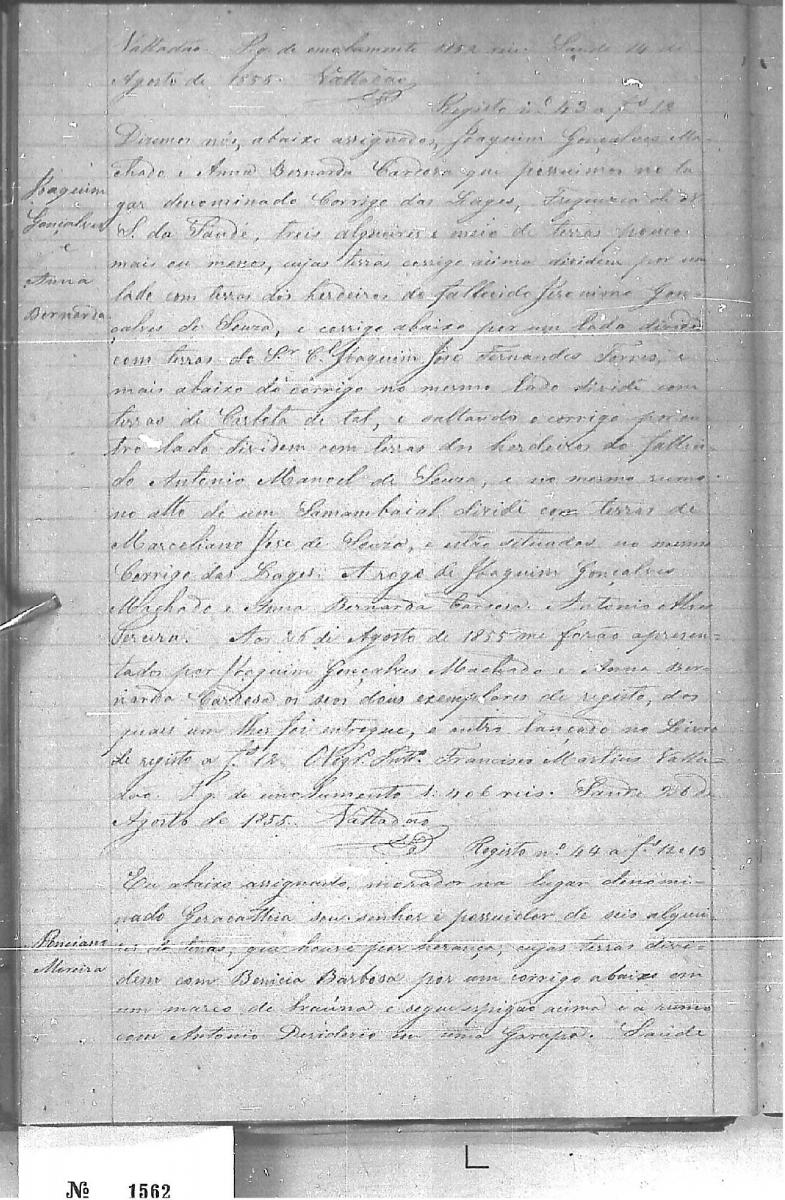 Valladão. Pg. de emolumento 1852 reis. Saude 14 de
Agosto de 1855. Valladao
Registo n.º 43 a fs 12
Joaquim
Gonçalves
e
Anna
Bernarda
Dizemos nós, abaixo assignados, Joaquim Gonçalves Ma-
chado e Anna Bernarda Cardosa que possuimos no lu-
gar denominado Corrigo das Lages, Freguezia de N.
S. da Saude, tres alqueires e meio de terras pouco
mais ou menos, cujas terras corrigo acima dividem por um
lado com terras dos herdeiros do fallecido Jeronimo Gon-
çalves de Souza, e corrigo abaixo por um lado divide
com terras do Sr. C.el Joaquim José Fernandes Torres, e
mais abaixo do corrigo no mesmo lado divide com
terras de de tal, e saltando o corrigo por ou-
tro lado dividem com terras dos herdeiros do falleci-
do Antonio Manoel de Souza, e no mesmo rumo
no alto de um Samambaial divide com terras de
Marceliano José de Souza, e estão situadas no mesmo
Corrigo das Lages. A rogo de Joaquim Gonçalves
Machado e Anna Bernarda Cardosa. Antonio Alves
Pereira. Aos 26 de Agosto de 1855 me forão apresen-
tados por Joaquim Gonçalves Machado e Anna Ber-
narda Cardosa os seos dous exemplares de registo, dos
quais um lhes foi entregue, e outro lançado no Livro
de registo a fs 12. O Francisco Martins Valla-
dao. Pg. de emolumento 1:406 reis. Saude 26 de
Agosto de 1855. Valladao
Registo n.º 44 a fs 12 e 13
Ponciano
Moreira
Eu abaixo assignado, morador no lugar denomi-
nado sou senhor e possuidor de seis alquei-
res de terras, que houve por herança, cujas terras divi-
dem com Benicia Barbosa por um corrigo abaixo em
um marco de braúna e segue espigão acima e a rumo
com Antonio Desiderio em uma Garapa. Saude
Nº 1562